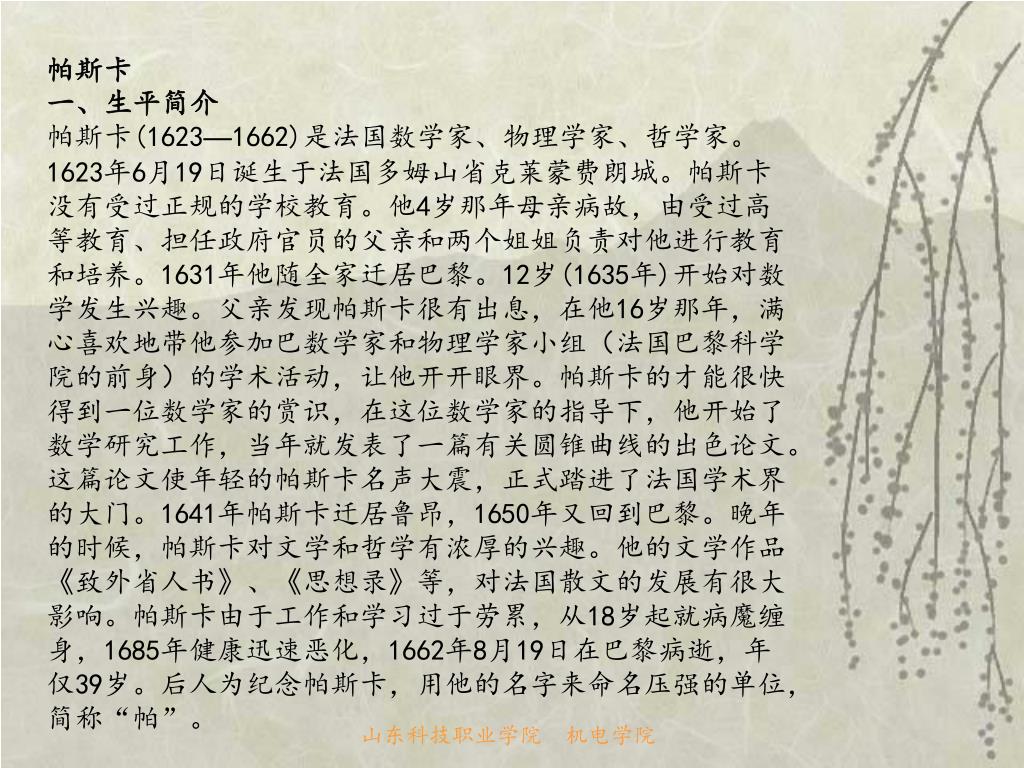 帕斯卡
一、生平简介
帕斯卡(1623—1662)是法国数学家、物理学家、哲学家。
1623年6月19日诞生于法国多姆山省克莱蒙费朗城。帕斯卡
没有受过正规的学校教育。他4岁那年母亲病故，由受过高
等教育、担任政府官员的父亲和两个姐姐负责对他进行教育
和培养。1631年他随全家迁居巴黎。12岁(1635年)开始对数
学发生兴趣。父亲发现帕斯卡很有出息，在他16岁那年，满
心喜欢地带他参加巴数学家和物理学家小组（法国巴黎科学
院的前身）的学术活动，让他开开眼界。帕斯卡的才能很快
得到一位数学家的赏识，在这位数学家的指导下，他开始了
数学研究工作，当年就发表了一篇有关圆锥曲线的出色论文。
这篇论文使年轻的帕斯卡名声大震，正式踏进了法国学术界
的大门。1641年帕斯卡迁居鲁昂，1650年又回到巴黎。晚年
的时候，帕斯卡对文学和哲学有浓厚的兴趣。他的文学作品
《致外省人书》、《思想录》等，对法国散文的发展有很大
影响。帕斯卡由于工作和学习过于劳累，从18岁起就病魔缠
身，1685年健康迅速恶化，1662年8月19日在巴黎病逝，年
仅39岁。后人为纪念帕斯卡，用他的名字来命名压强的单位，
简称“帕”。
山东科技职业学院 机电学院